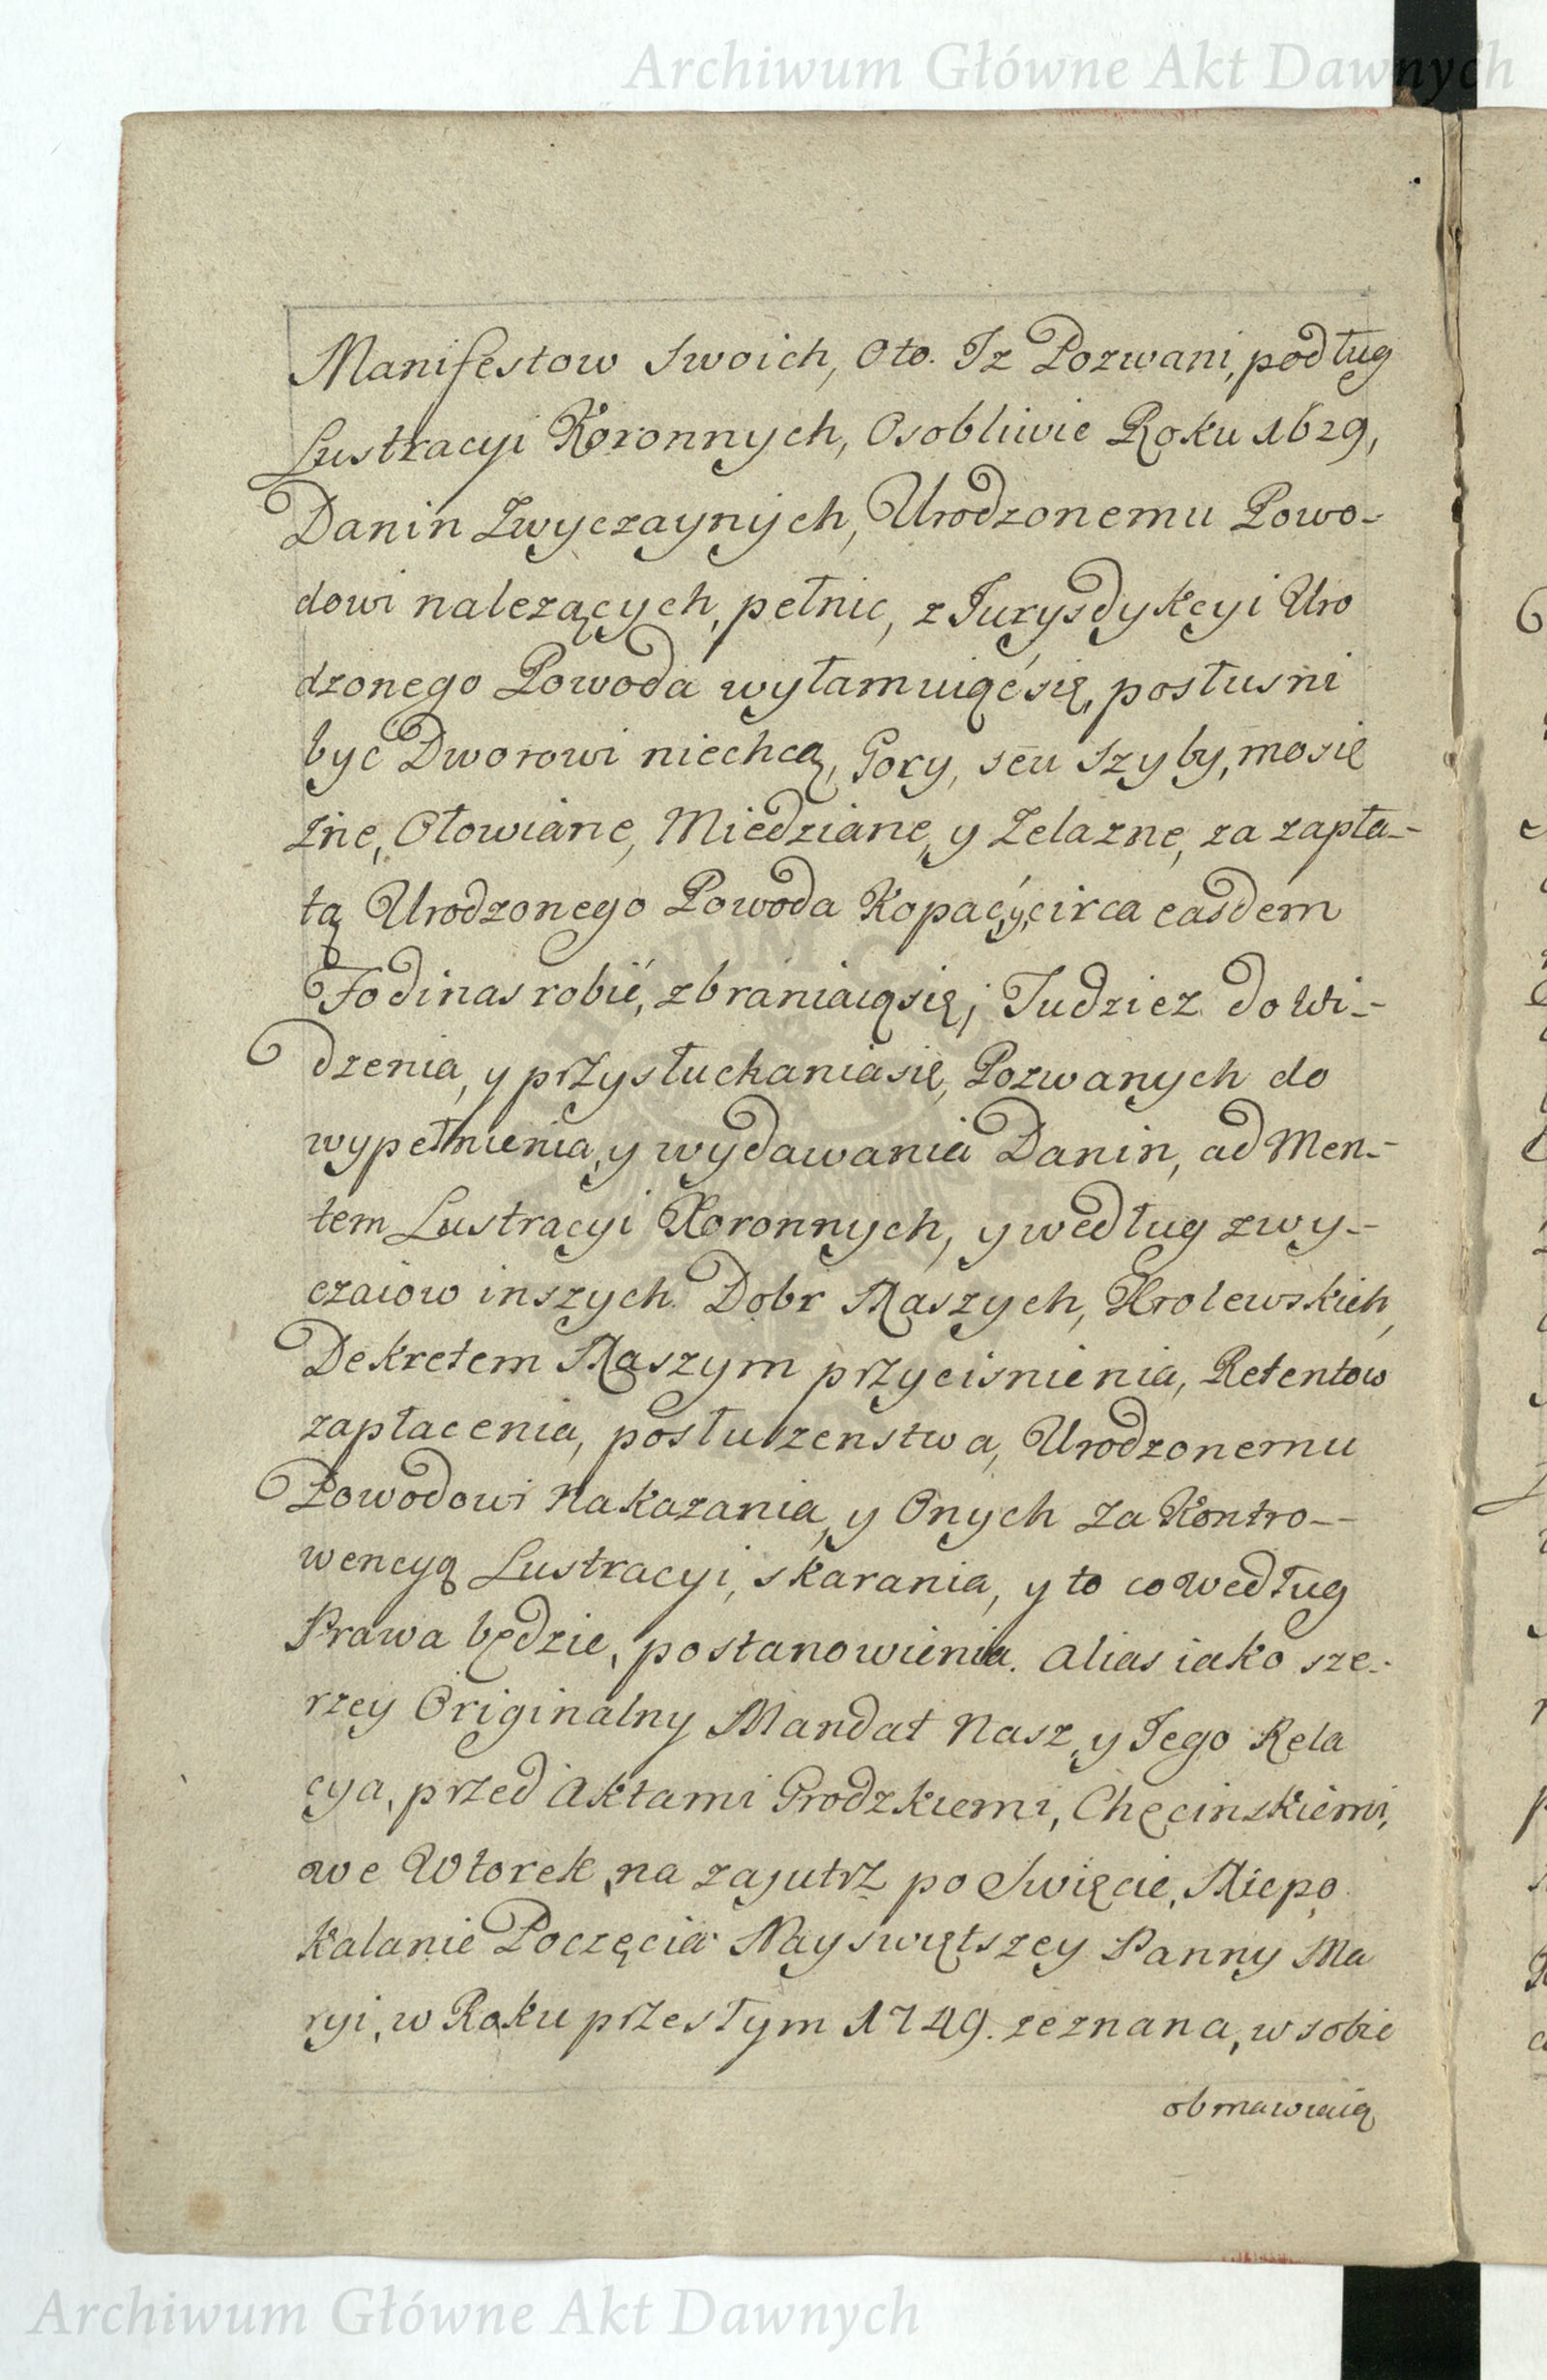 Archiwum Główne Akt Dawnych
Manifestow Swoich, Oto. Iz Pozwani, podług
Lustracyi Koronnych, Osobliwie Roku 1629,
Danin Zwyczaynych, Urodzonemu Powo-
dowi nalezących, pełnic, z Jurysdykcyi Uro
dzonego Powoda wyłamuiąć się, posłusni
być Dworowi niechcą, Gory, seu Szyby, mosię
zne, Ołowiane, Miedziane, y Zelazne, za zapła-
tą Urodzonego Powoda Kopać, y, circa easdem
Fodinas robić, zbraniaią się; Tudziez do Wi-
dzenia, y przysłuchania się, Pozwanych do
wypełnienia, y wydawania Danin, ad Men-
tem Lustracyi Koronnych, y według zwy-
czaiow inszych Dobr Naszych, Krolewskich,
Dekretem Naszym przycisnienia, Retentow
zapłacenia, posłuszenstwa, Urodzonemu
Powodowi Nakazania, y Onych za Kontro-
wencyą Lustracyi, skarania, y to co według
Prawa będzie, postanowienia. alias iako sze-
rzey Originalny Mandat Nasz, y Jego Rela
cya, przed Aktami Grodzkiemi, Chęcinskiemi,
we Wtorek, na zajutrz po Swięcie, Niepo
kalanie Poczęcia Nayswiętszey Panny Ma
ryi, w Roku przesłym 1749. zeznana, w sobie
obmawiaią
Archiwum Główne Akt Dawnych